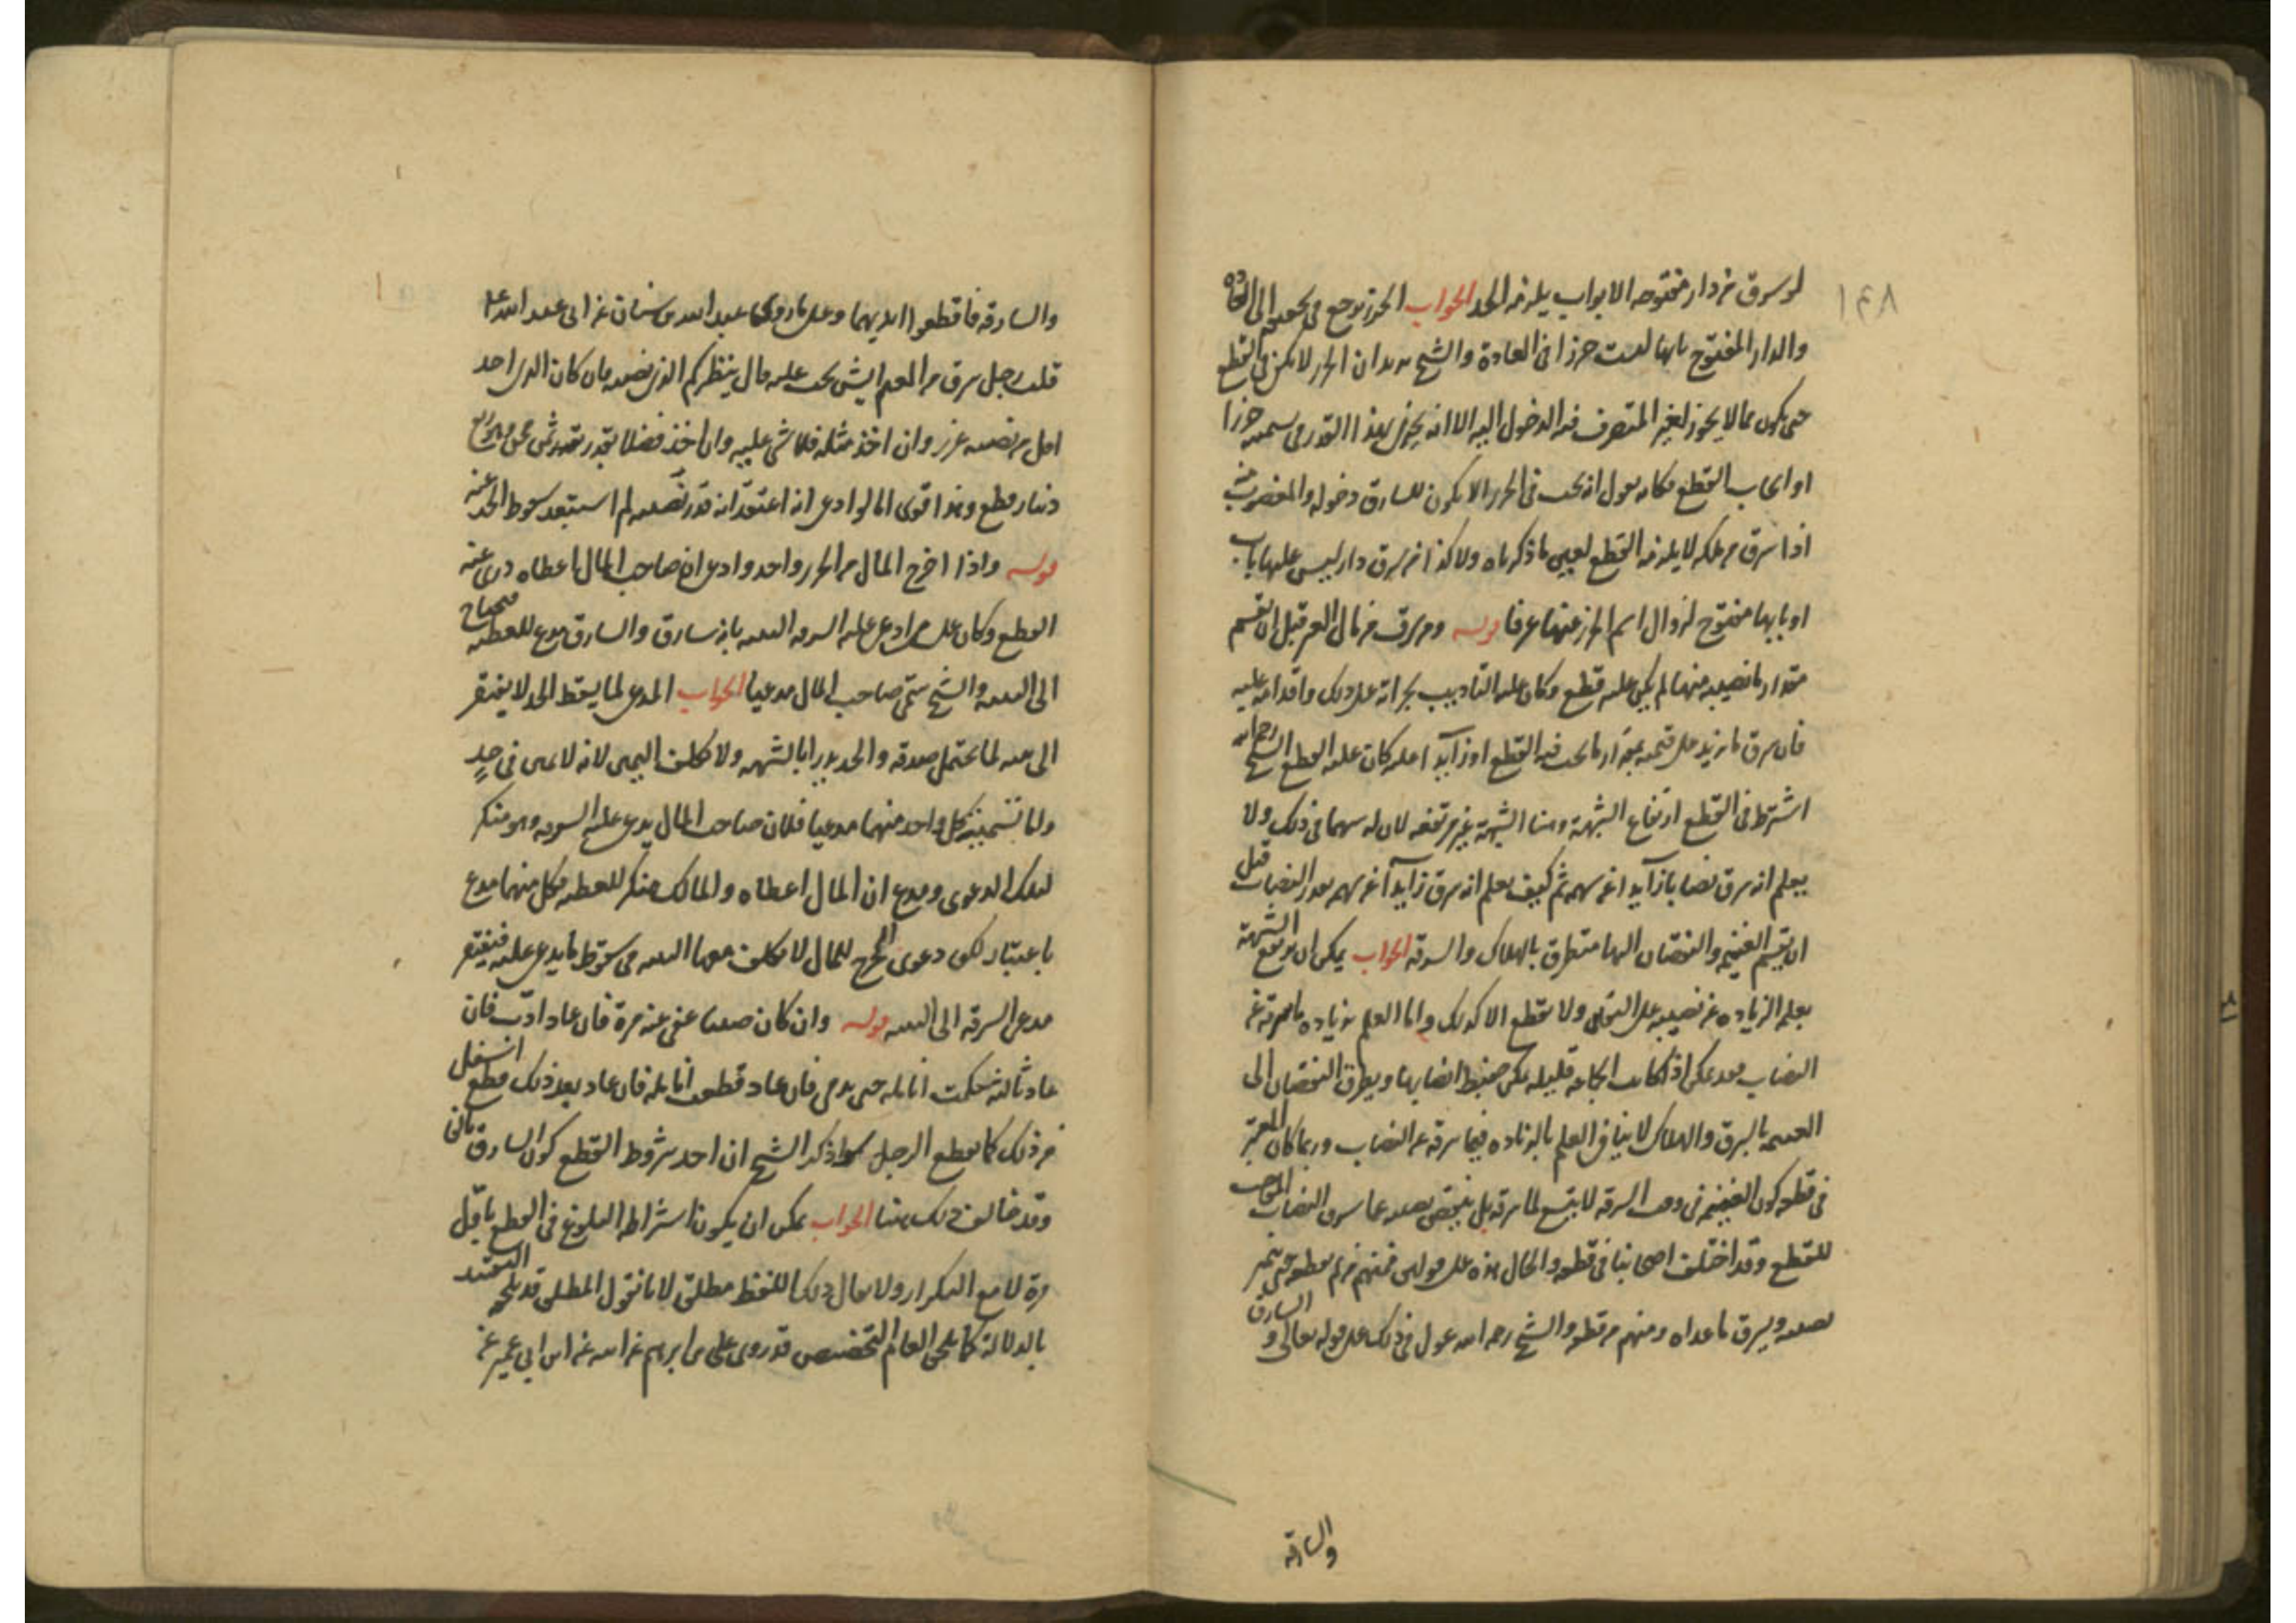 ١٤٨
لو سرق من دار مفتوحه الابواب يلزمه الحد الجواب الحرز يرجع في تحقيقه الى العادة
والدار المفتوح بابها ليست حرزا في العادة والشيخ يريد ان الحرز لا يكفي في القطع
حتى يكون مما لا يجوز لغير المتصرف فيه الدخول اليه الا انه بهذا القدر يسميه حرزا
او ايجاب القطع فكانه يقول انه يجب في الحرز الا يكون للسارق دخوله والمغصوب منه
اذا سرق من ملكه لا يلزمه القطع لعين ما ذكرناه ولا كذا من سرق دار ليس عليها باب
او بابها مفتوح لزوال اسم الحرز عنها عرفا قوله ومن سرق من مال الغنم قبل ان يقسم
مقدار ما نصيبه منها لم يكن عليه قطع وكان عليه التاديب بجراته على ذلك واقدامه عليه
فان سرق ما يزيد على قيمه بمقدار ما يجب فيه القطع او زايدا عليه كان عليه القطع الشيخ رحمه الله
اشترط في القطع ارتفاع الشبهة وهنا الشبهة غير مرتفعه لان له سهما في ذلك ولا
يعلم انه سرق نصابا زايدا عن سهمه ثم كيف يعلم انه سرق زايدا عن سهمه بعد النصاب قبل
ان يقسم الغنيمه والنقصان اليها متطرق بالهلاك والسرقه الجواب يمكن ان الشبهة
بعلم الزياده عن نصيبه على اليقين ولا يقطع الا كذلك واما العلم بزياده ما سرقه عن
النصاب فقد يمكن اذا كانت الجماعه قليله يمكن ضبط انصابها وتطرق النقصان الى
القسمه بالسرق والهلاك لا ينافي العلم بالزياده فيما سرقه عن النصاب وربما كان المعتبر
في قطعه كون الغنيمه في وقت السرقه لا يتسع لما سرقه بل ينقص نصيبه عما سرق النصاب الموجب
للقطع وقد اختلف اصحابنا في قطعه والحال هذه على قولين فمنهم من لم يقطعه حتى يتميز
نصيبه ويسرق ما عداه ومنهم من قطعه والشيخ رحمه الله عول في ذلك على قوله تعالى والسارق
والسارقه
والسارقه فاقطعوا ايديهما وعلى ما رواه عبد الله بن سنان عن ابي عبد الله ع
قلت رجل سرق من المغنم ايش يجب عليه قال ينظر كم الذي نصيبه فان كان الذي اخذ
اقل من نصيبه عزر وان اخذ مثله فلا شي عليه وان اخذ فضلا بقدر ثمن مجن وهو ربع
دينار قطع وهذا قوي اما لو ادعى انه اعتقد انه قدر نصيبه لم استبعد سقوط الحد عنه
قوله واذا اخرج المال من الحرز واحد وادعى ان صاحب المال اعطاه درئ عنه
القطع وكان على من ادعى عليه السرقه البينه بانه سارق والسارق مدع للعطيه فيحتاج
الى البينه والشيخ سمى صاحب المال مدعيا الجواب المدعي لما يسقط الحد لا يفتقر
الى بينه لما يحتمل صدقه والحد يدرا بالشبهه ولا يكلف اليمين لانه لا يمين في حدٍ
واما تسميته كل واحد منهما مدعيا فلان صاحب المال يدعي عليه السرقه وهو منكر
لتلك الدعوى ومدع ان المال اعطاه والمالك منكر للعطيه فكل منهما مدع
باعتبار لكن دعوى المخرج للمال لا يكلف معها البينه في سقوط ما يدعى عليه فيفتقر
مدعي السرقه الى البينه قوله وان كان صبيا عفي عنه مرة فان عاد ادّب فان
عاد ثالثه حكت انامله حتى يدمى فان عاد قطعت انامله فان عاد بعد ذلك قطع اسفل
من ذلك كما يقطع الرجل سواء ذكر الشيخ ان احد شروط القطع كون السارق بالغ
وقد خالف ذلك هنا الجواب يمكن ان يكون اشتراط البلوغ في القطع باول
مرة لا مع التكرار ولا يقال ذلك اللفظ مطلق لانا نقول المطلق قد يلحقه التقييد
بالدلالة كما يلحق العام التخصيص قد روى علي بن ابراهيم عن ابيه عن ابن ابي عمير عن